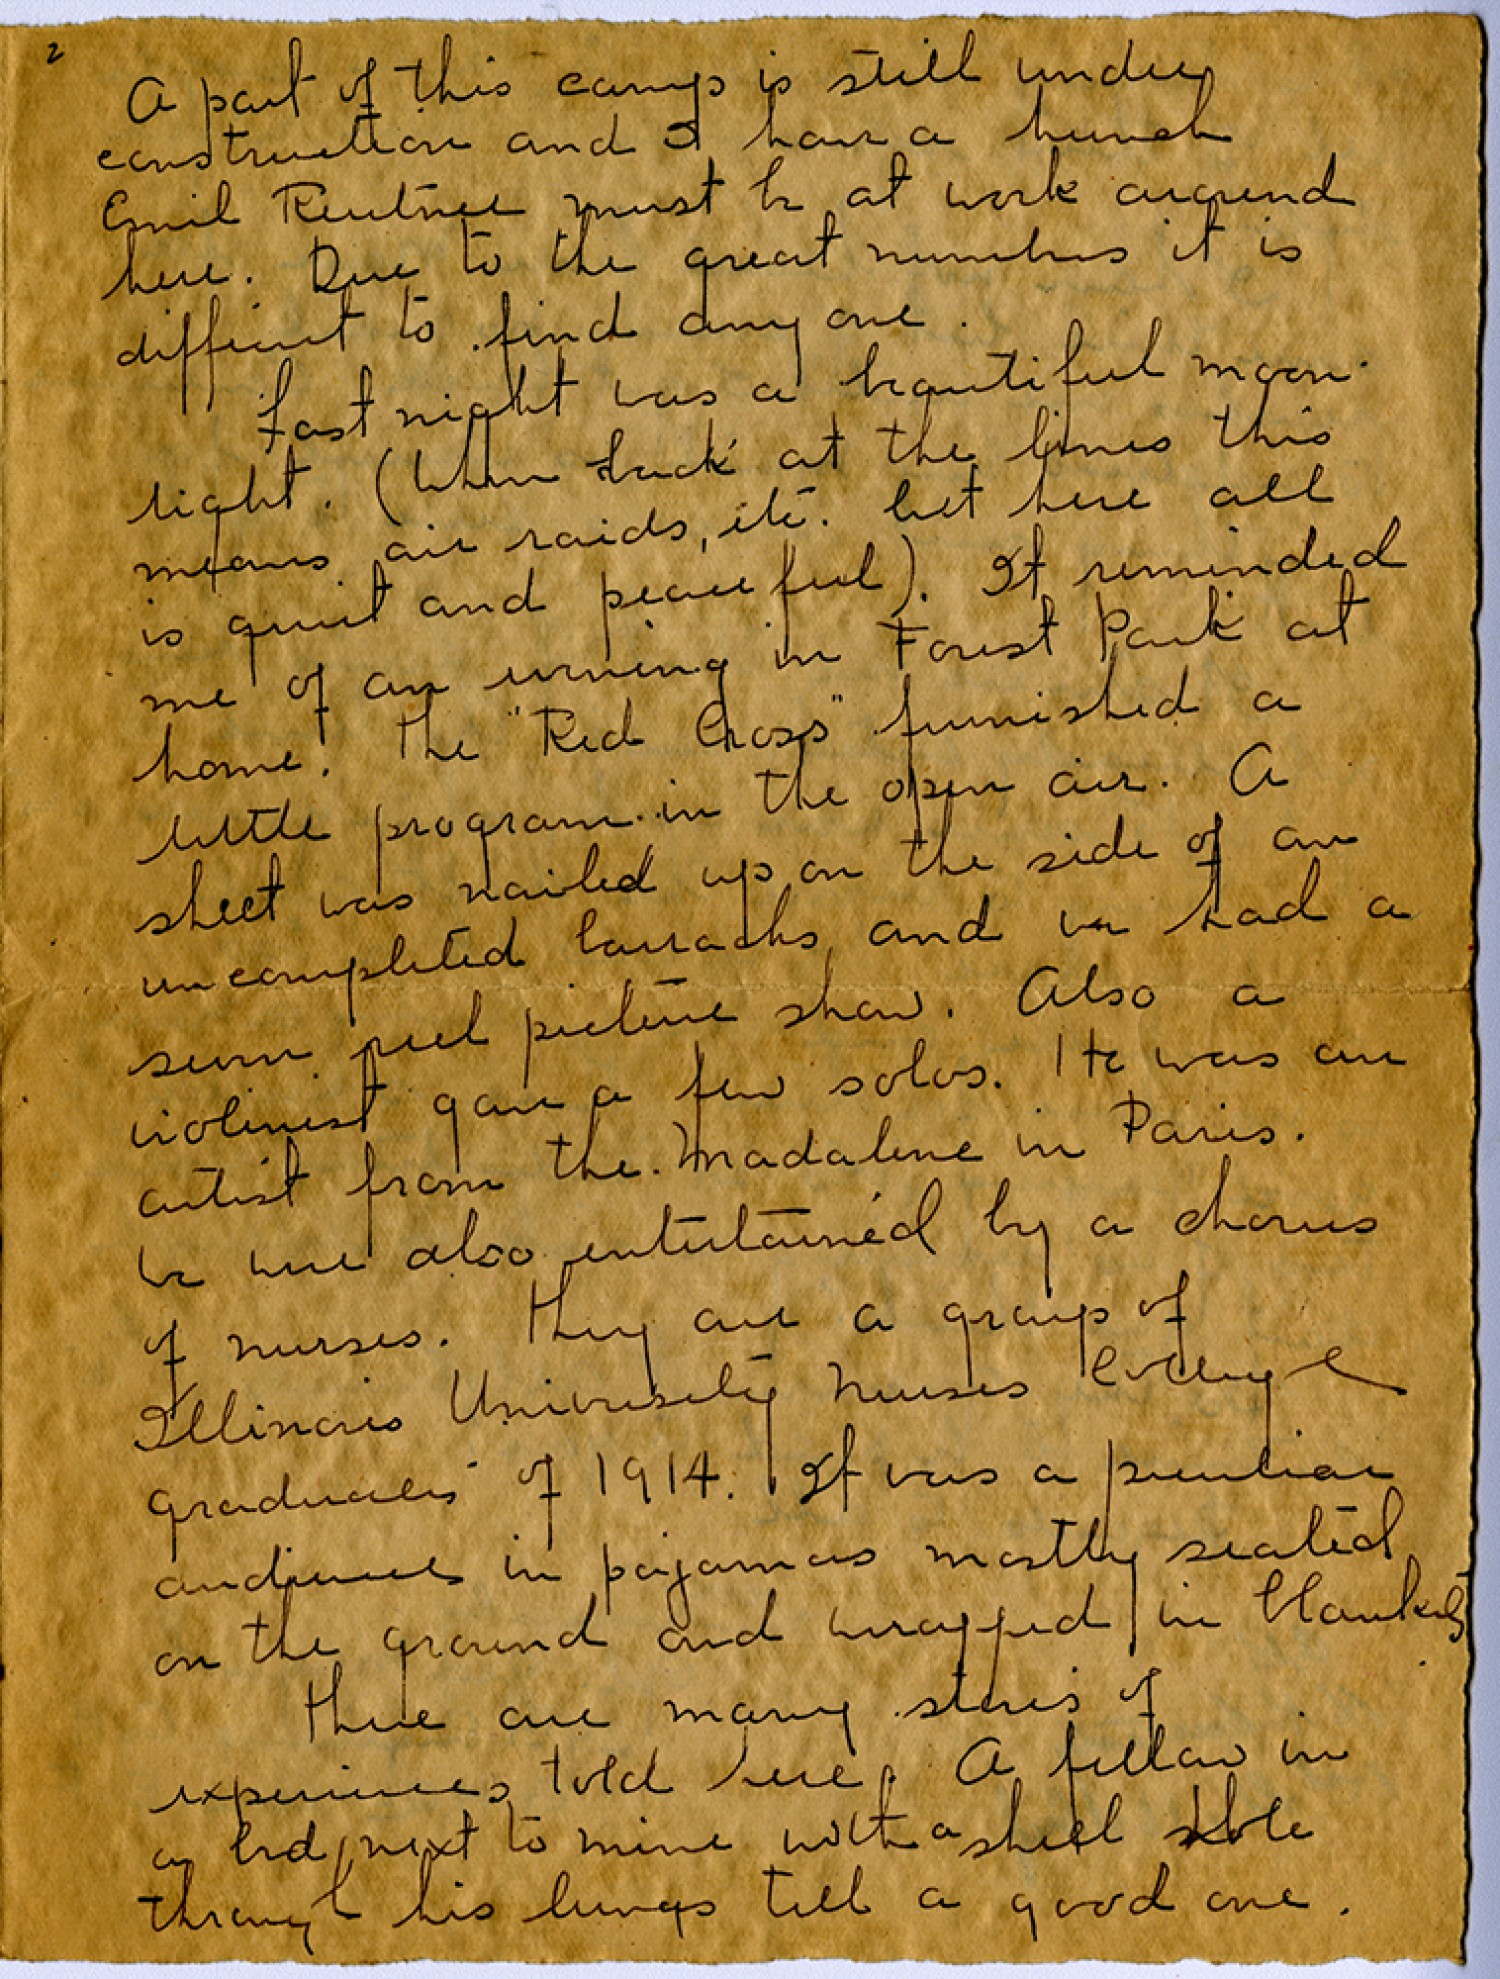 2
A part of this camp is still under
construction and I have a hunch
Emil must be at work around
here. Due to the great numbers it is
difficult to find anyone.
Last night was a beautiful moon-
light. (When back at the lines this
means air raids, etc. but here all
is quiet and peaceful). It reminded
me of an evening in Forest Park at
home. The "Red Cross" furnished a
little program in the open air. A
sheet was nailed up on the side of an
uncompleted barracks and we had a
seven reel picture show. Also a
violinist gave a few solos. He was an
artist from the Madalene in Paris.
We were also entertained by a chorus
of nurses. They are a group of
Illinois University Nurses College
graduates of 1914. It was a peculiar
audience in pajamas mostly seated
on the ground and wrapped in blankets
There are many stories of
experiences told here. A fellow in
a bed next to mine with a shell hole
through his lungs tell a good one.